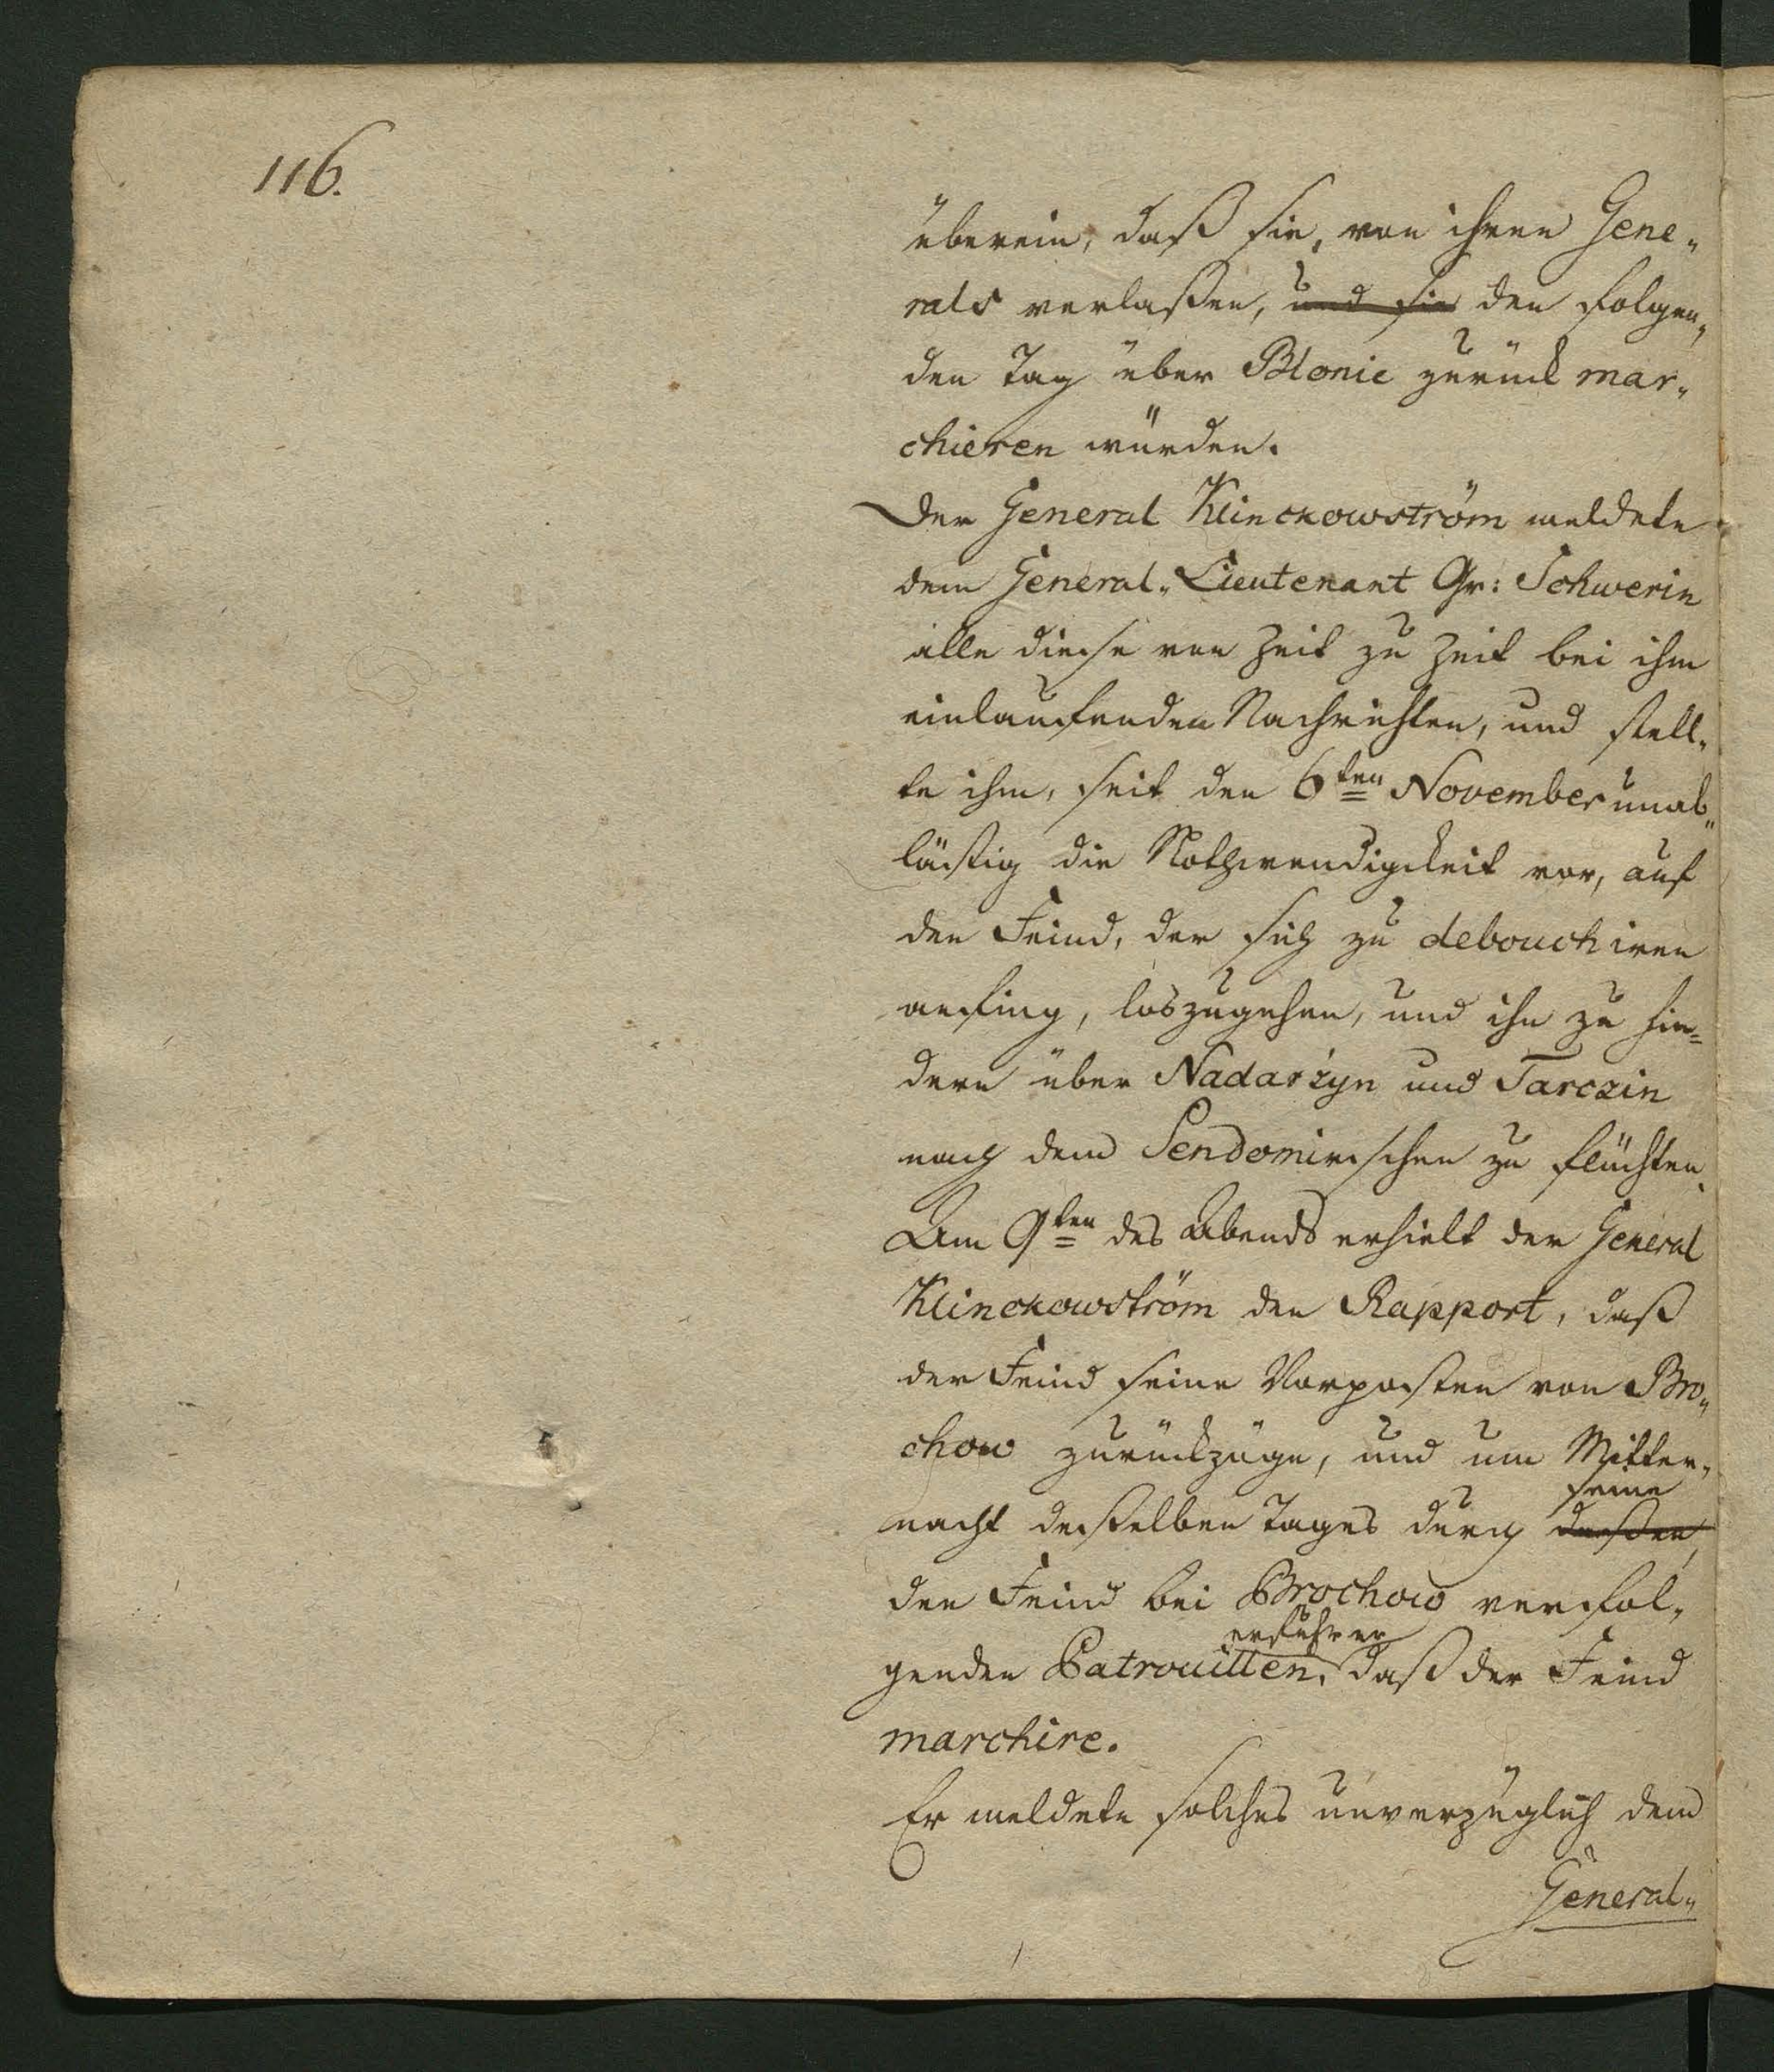 116.
überein, daß sie, von ihren Gene„
rals verlaßen, und sie den folgen„
den Tag über Blonie zurück mar„
chieren würden.
Der General Klinckowström meldete
dem General„Lieutenant Gr: Schwerin
alle diese von Zeit zu Zeit bei ihm
einlaufenden Nachrichten, und stell„
te ihm, seit den 6ten November unab„
läßig die Nothwendigkeit vor, auf
den Feind, der sich zu debouchiren
anfing, loszugehen, und ihn zu hin=
dern über Nadarźyn und Tarczin
nach dem Sendomirschen zu flüchten.
Am 9ten des Abends erhielt der General
Klinckowström den Rapport, daß
der Feind seine Vorposten von Bro„
chow zurückzöge, und um Mitter„
seine
nacht deßelben Tages durch deßen,
den Feind bei Brochow verfol„
erfuhr er
genden Patrouillen, daß der Feind
marchire.
Er meldete solches unverzüglich dem
General„